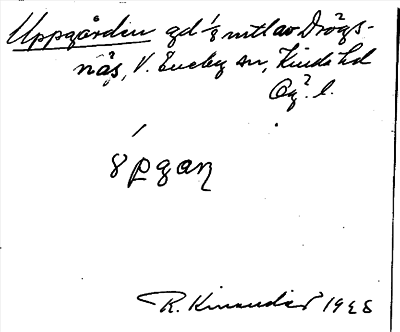 Uppgården gd 1/8 mtl av Drögs-
näs, V. Eneby sn, Kinda hd
Ög. l.
R. Kinander 1928